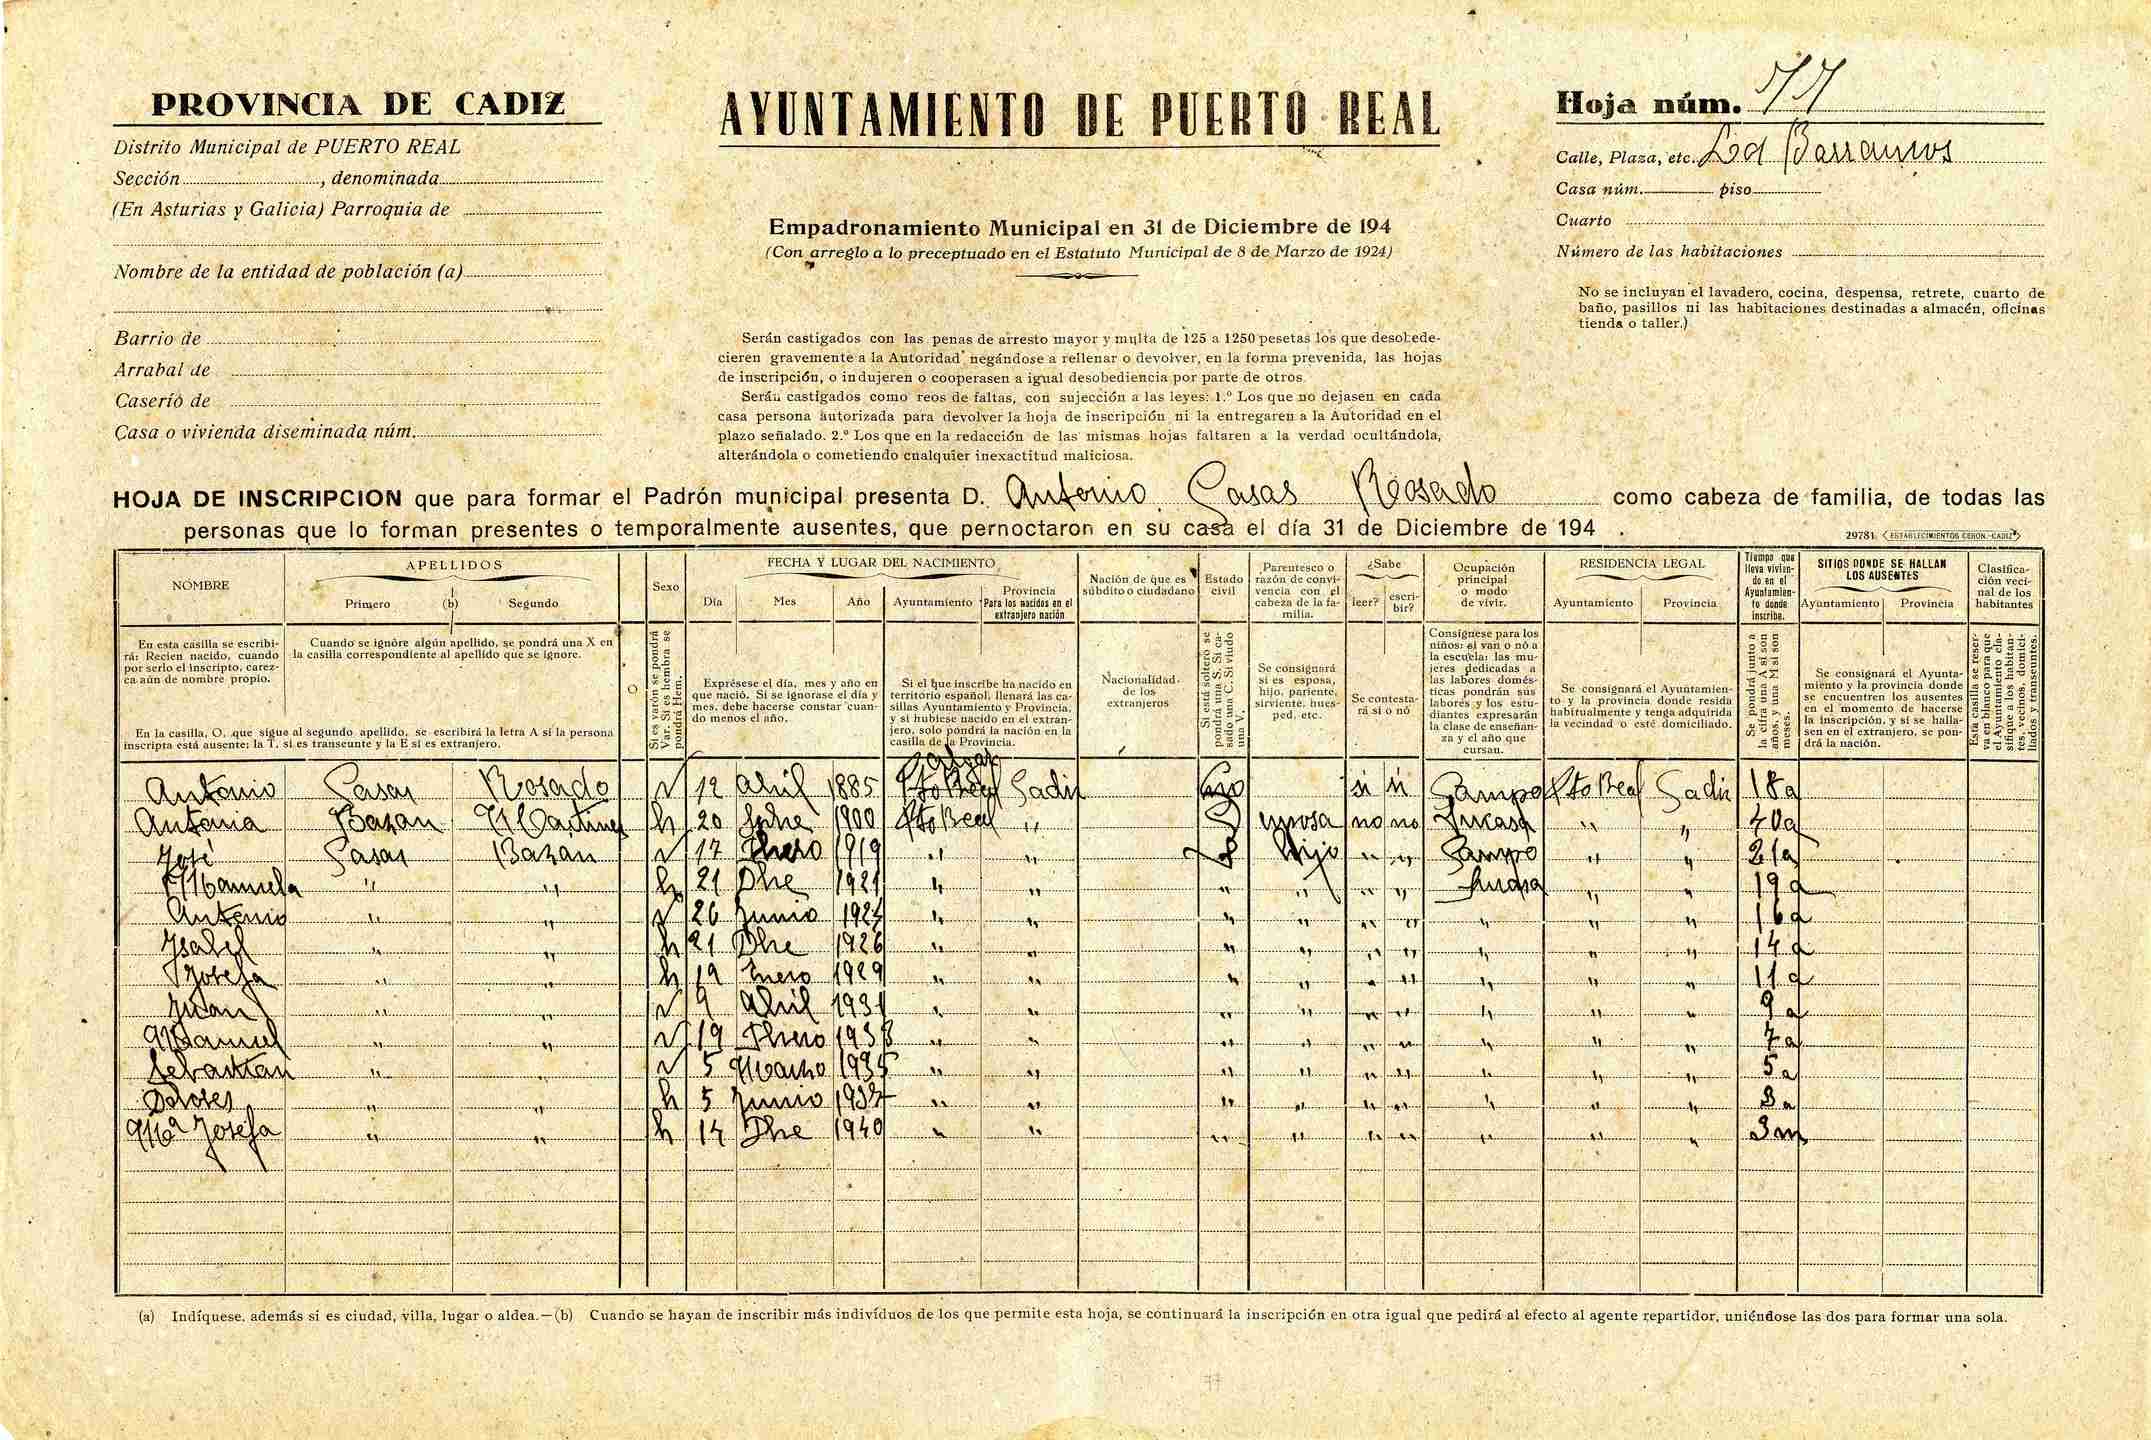 PROVINCIA DE CADIZ
Distrito Municipal de PUERTO REAL
Sección , denominada
(En Asturias y Galicia) Parroquia de
Nombre de la entidad de población (a)
Barrio de
Arrabal de
Caserío de
Casa o vivienda diseminada núm.
AYUNTAMIENTO DE PUERTO REAL
Empadronamiento Municipal en 31 de Diciembre de 194
(Con arreglo a lo preceptuado en el Estatuto Municipal de 8 de Marzo de 1924)
Serán castigados con las penas de arresto mayor y multa de 125 a 1250 pesetas los que desobede-
cieren gravemente a la Autoridad negándose a rellenar o devolver, en la forma prevenida, las hojas
de inscripción, o indujeren o cooperasen a igual desobediencia por parte de otros
Serán castigados como reos de faltas, con sujección a las leyes: 1.º Los que no dejasen en cada
casa persona autorizada para devolver la hoja de inscripción ni la entregaren a la Autoridad en el
plazo señalado. 2.º Los que en la redacción de las mismas hojas faltaren a la verdad ocultándola,
alterándola o cometiendo cualquier inexactitud maliciosa.
Hoja núm. 77
Calle, Plaza, etc.
Casa núm. piso
Cuarto
Número de las habitaciones
No se incluyan el lavadero, cocina, despensa, retrete, cuarto de
baño, pasillos ni las habitaciones destinadas a almacén, oficinas
tienda o taller.)
HOJA DE INSCRIPCION que para formar el Padrón municipal presenta D. Antonio Casas Rosado como cabeza de familia, de todas las
personas que lo forman presentes o temporalmente ausentes, que pernoctaron en su casa el día 31 de Diciembre de 194 .
29781. ESTABLECIMIENTOS CERON.-CADIZ
NOMBRE
APELLIDOS
Primero (b) Segundo
O
Sexo
FECHA Y LUGAR DEL NACIMIENTO
Día Mes Año Ayuntamiento
Provincia
Para los nacidos en el
extranjero nación
Nación de que es
súbdito o ciudadano
Estado
civil
Parentesco o
razón de convi-
vencia con el
cabeza de la fa-
milia.
¿Sabe
leer? escri-
bir?
Ocupación
principal
o modo
de vivir.
RESIDENCIA LEGAL
Ayuntamiento Provincia
Tiempo que
lleva vivien-
do en el
Ayuntamien-
to donde
inscribe.
SITIOS DONDE SE HALLAN
LOS AUSENTES
Ayuntamiento Provincia
Clasifica-
ción veci-
nal de los
habitantes
En esta casilla se escribi-
rá: Recien nacido, cuando
por serlo el inscripto, carez-
ca aún de nombre propio.
Cuando se ignore algún apellido, se pondrá una X en
la casilla correspondiente al apellido que se ignore.
En la casilla, O, que sigue al segundo apellido, se escribirá la letra A si la persona
inscripta está ausente; la T, si es transeunte y la E si es extranjero.
Si es varón se pondrá
Var. Si es hembra se
pondrá Hem.
Exprésese el día, mes y año en
que nació. Si se ignorase el día y
mes, debe hacerse constar cuan-
do menos el año.
Si el que inscribe ha nacido en
territorio español, llenará las ca-
sillas Ayuntamiento y Provincia,
y si hubiese nacido en el extran-
jero, solo pondrá la nación en la
casilla de la Provincia.
Nacionalidad
de los
extranjeros
Si está soltero se
pondrá una S. Si ca-
sado una C. Si viudo
una V.
Se consignará
si es esposa,
hijo, pariente,
sirviente, hues-
ped, etc.
Se contesta-
rá si o nó
Consígnese para los
niños: si van o nó a
la escuela: las mu-
jeres dedicadas a
las labores domés-
ticas pondrán sus
labores y los estu-
diantes expresarán
la clase de enseñan-
za y el año que
cursan.
Se consignará el Ayuntamien-
to y la provincia donde resida
habitualmente y tenga adquirida
la vecindad o esté domiciliado.
Se pondrá junto a
la cifra una A si son
años, y una M si son
meses.
Se consignará el Ayunta-
miento y la provincia donde
se encuentren los ausentes
en el momento de hacerse
la inscripción, y si se halla-
sen en el extranjero, se pon-
drá la nación.
Esta casilla se reser-
va en blanco para que
el Ayuntamiento cla-
sifique a los habitan-
tes, vecinos, domici-
liados y transeuntes.
Antonio Casas Rosado v 12 Abril 1885 Pto Real Cadiz si si Campo Pto Real Cadiz 18 a
Antonia Bazan Martinez h 20 Sbre 1900 Pto Real " C esposa no no Su casa " " 40 a
José Casas Bazan v 17 Fbrero 1919 " " S Hijo " " Campo " " 21 a
Manuela " " h 21 Dbre 1921 " " " " " " Su casa " " 19 a
Antonio " " v 26 Junio 1924 " " " " " " " " " 16 a
Isabel " " h 21 Dbre 1926 " " " " " " " " " 14 a
Josefa " " h 19 Enero 1929 " " " " " " " " " 11 a
Juan " " v 9 Abril 1931 " " " " " " " " " 9 a
Manuel " " v 19 Fbrero 1933 " " " " " " " " " 7 a
Sebastian " " v 5 Marzo 1935 " " " " " " " " " 5 a
Dolores " " h 5 Junio 1937 " " " " " " " " " 3 a
Mª Josefa " " h 14 Dbre 1940 " " " " " " " " " 3 m
(a) Indíquese, además si es ciudad, villa, lugar o aldea.—(b) Cuando se hayan de inscribir más indivíduos de los que permite esta hoja, se continuará la inscripción en otra igual que pedirá al efecto al agente repartidor, uniéndose las dos para formar una sola.
77